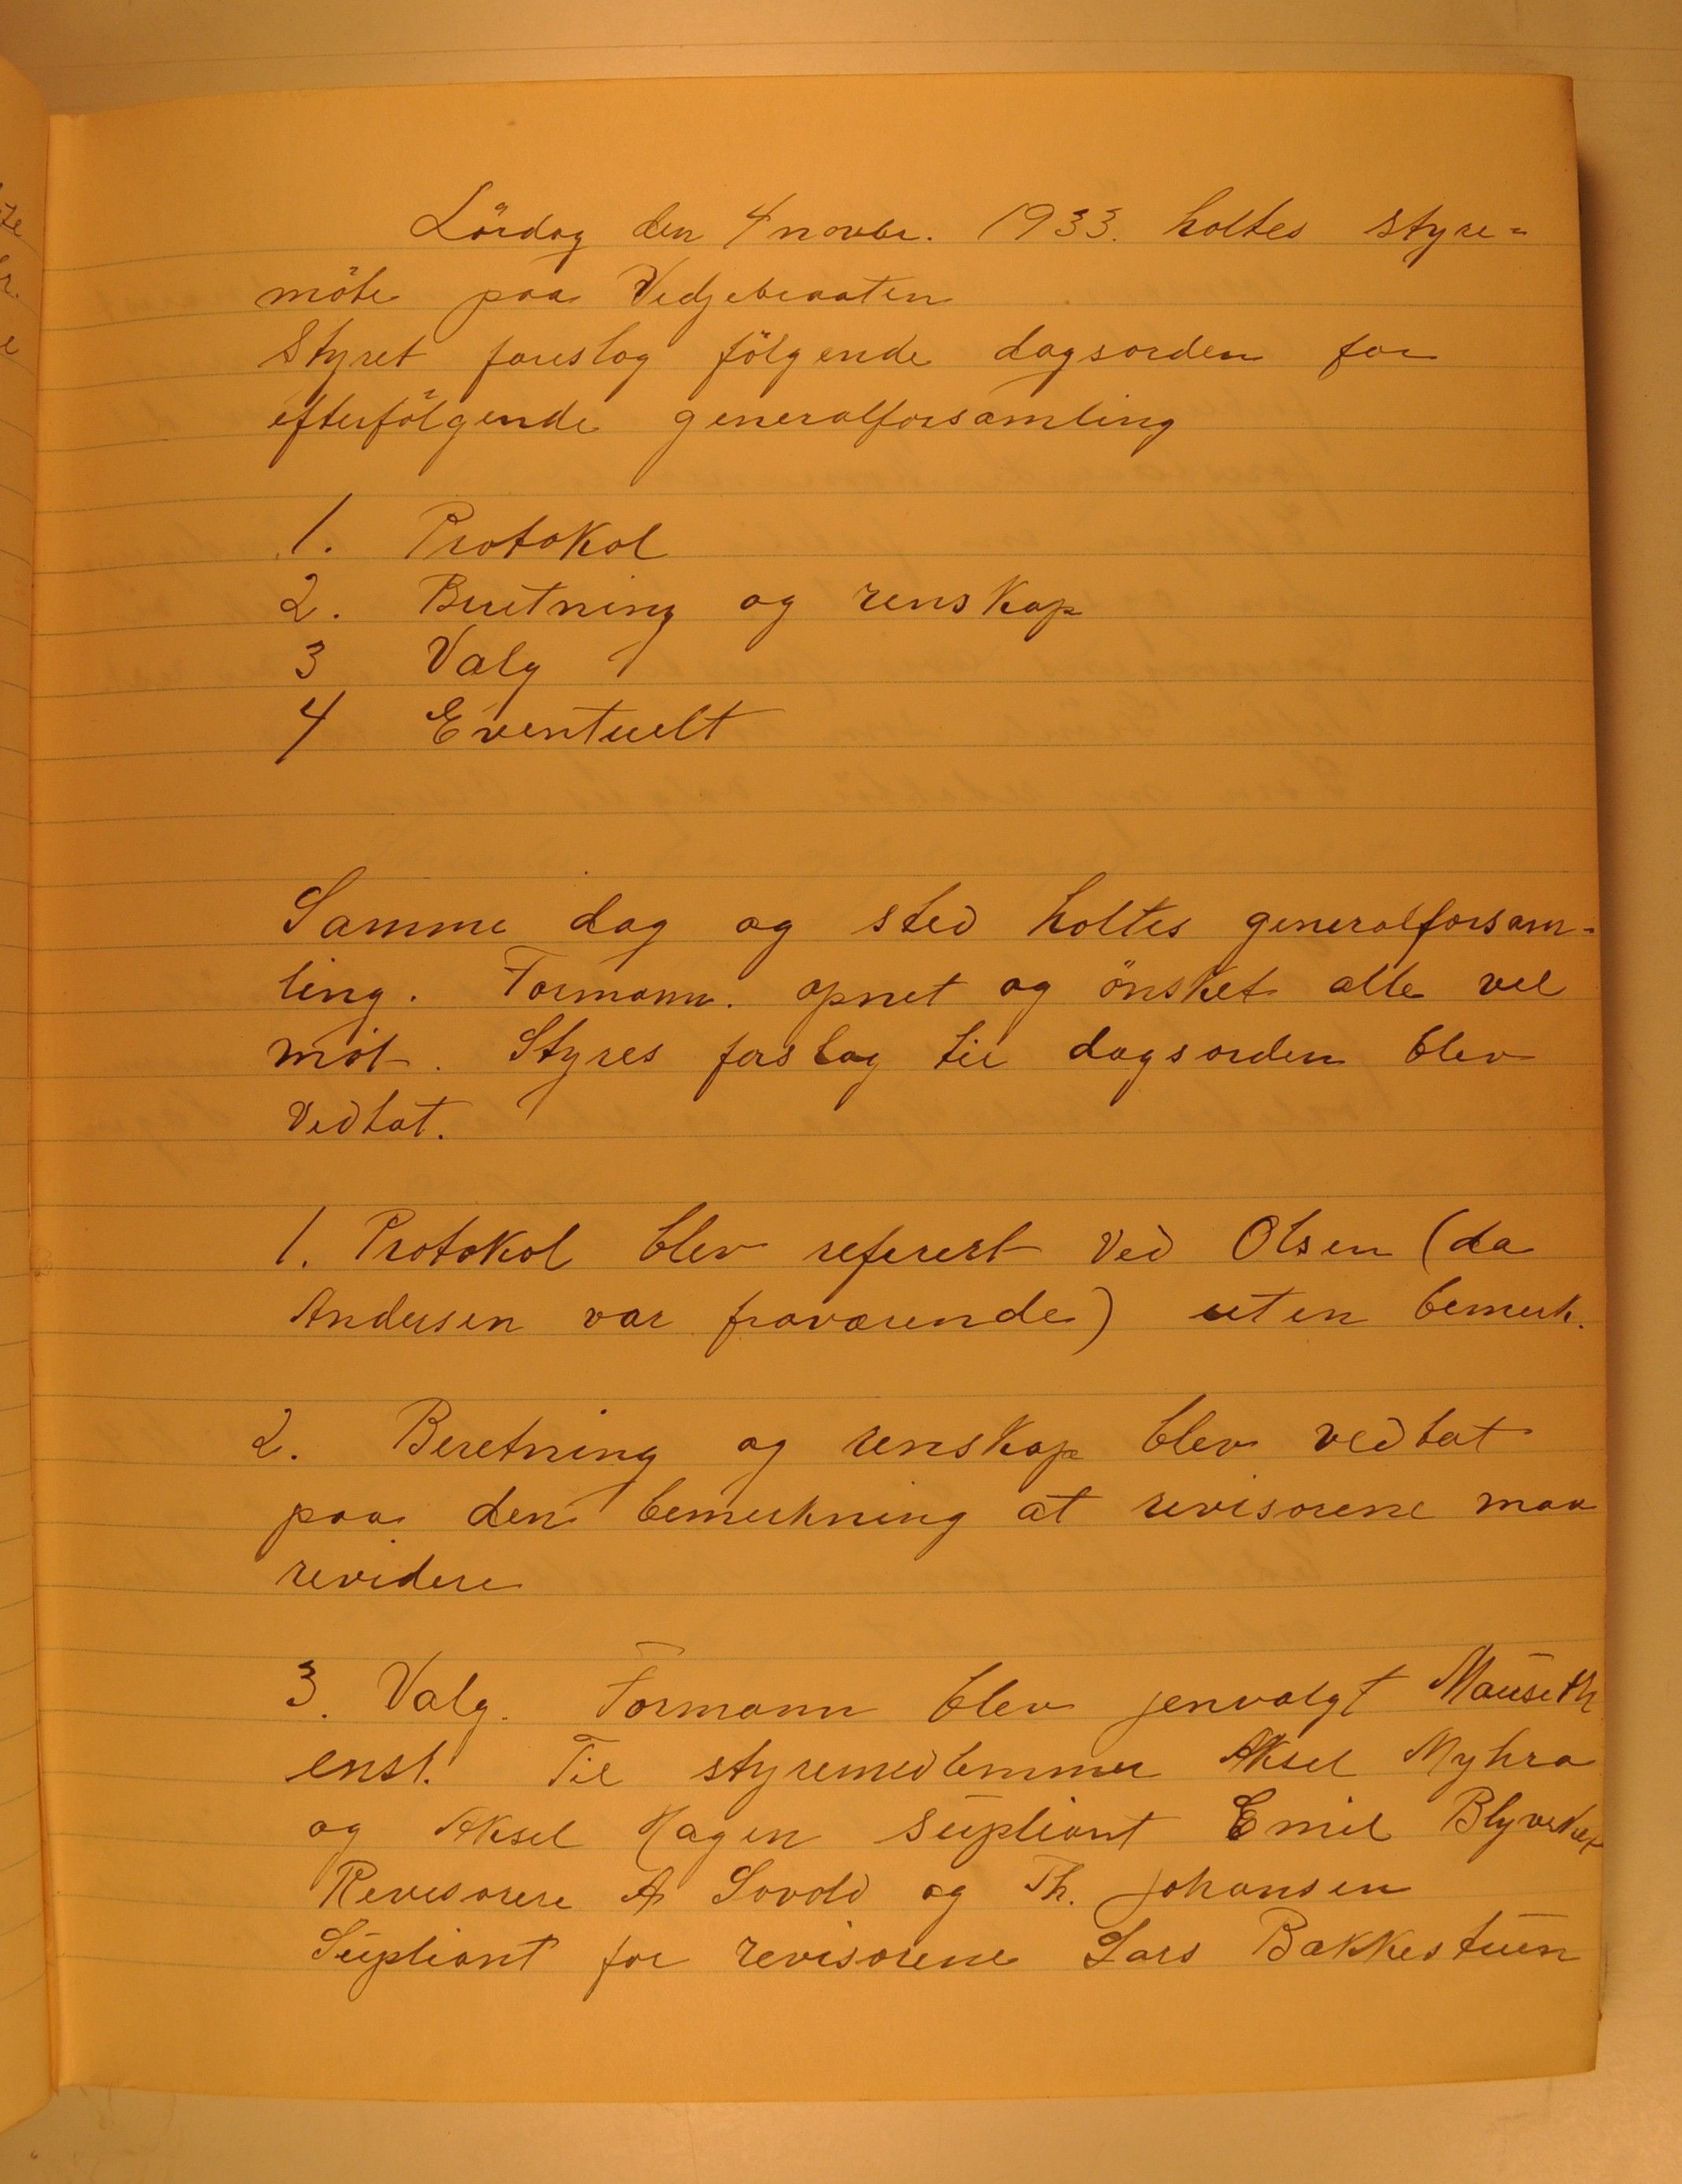 Lördag den 4 novbr. 1933. holtes styre=
möte paa Vedjebraaten
Styret foreslog fölgende dagsorden for
efterfölgende generalforsamling
1. Protokol
2. Beretning og renskap
3 Valg
4 Eventuelt
Samme dag og sted holtes generalforsam-
ling. Formann. opnet og önsket alle vel
möt. Styres forslag til dagsorden blev
vedtat.
1. Protokol blev referert ved Olsen (da
Andersen var fraværende) uten bemerk.
2. Beretning og renskap blev vedtat
paa den bemerkning at revisorene maa
revidere
3. Valg. Formann blev jenvalgt Mauseth
enst. Til styremedlemmer Aksel Myhra
og Aksel Hagen supliant Emil
Revisorere A Sovold og Th. Johansen
Supliant for revisorene Lars Bakkestuen